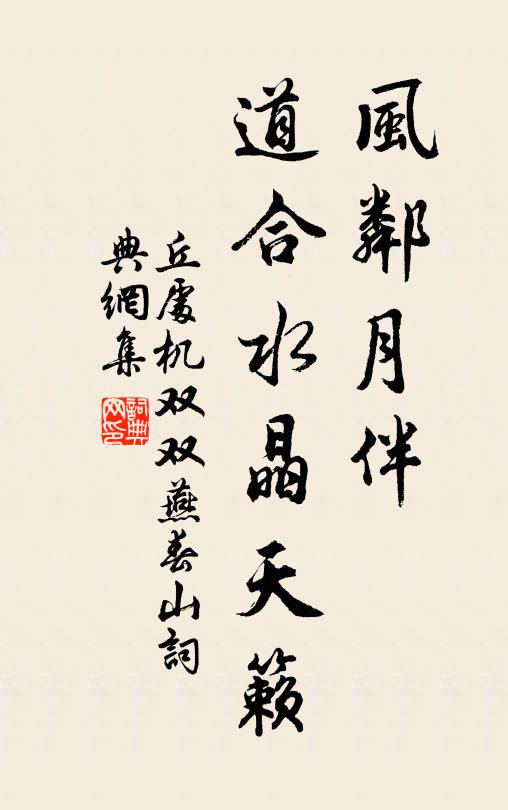 風鄰月伴
道合水晶天籟
丘處机双双燕春山詞
典網集
詞典网印